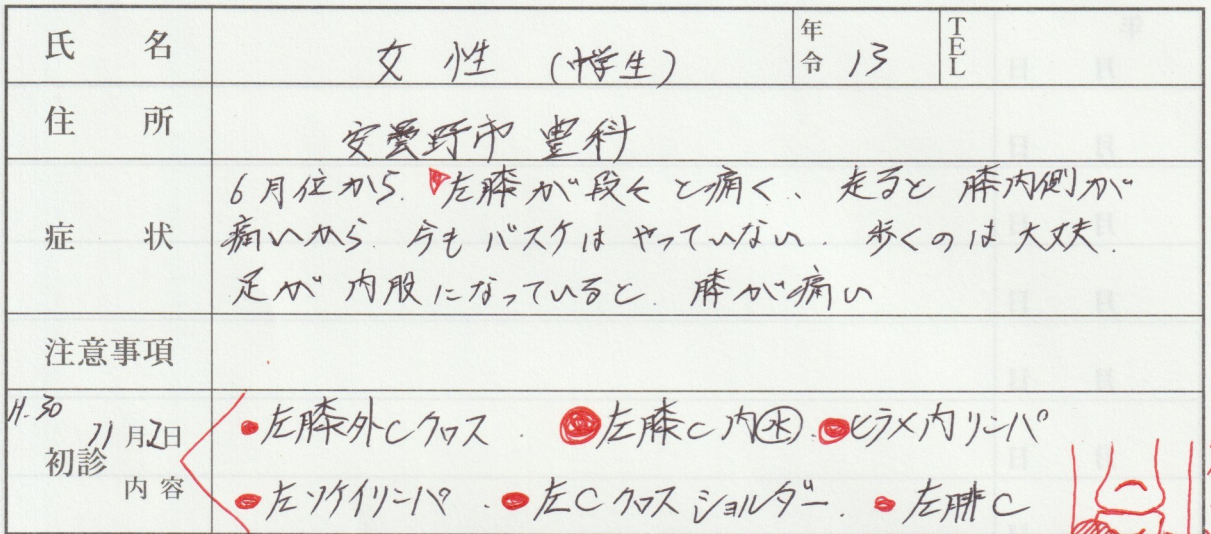 氏名 女性 (中学生) 年令 13 TEL
住所 安曇野市 豊科
症状 6月位から、左膝が段々と痛く、走ると膝内側が
痛いから、今もバスケはやっていない。歩くのは大丈夫.
足が内股になっていると、膝が痛い
注意事項
H.30
11月2日
初診
内容
・左膝外Cクロス ・左膝C内㊌ ・ヒラメ内リンパ
・左ソケイリンパ ・左Cクロスショルダー ・左腓C